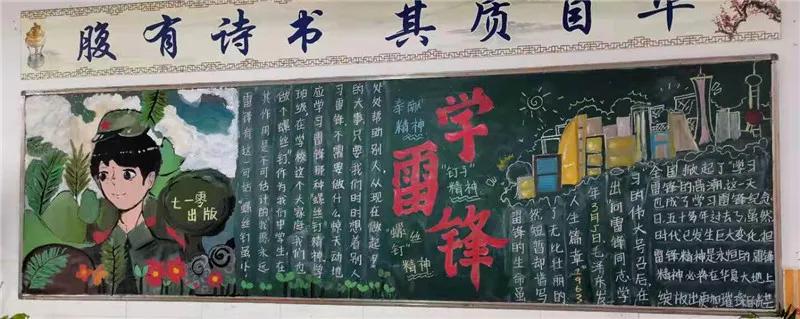 腹有诗书 其质自华
七一零
出版
处处帮助别人从现在做起!
的大事只要我们时时想着别人
习雷锋不需要做什么惊天动地
应学习雷锋那种"螺丝钉"精神学
班级在学校这个大家庭我们也
做个"螺丝钉"作为我们中学生在
其作用是不可估计的我愿永远
雷锋有这句话"螺丝钉虽小、
学雷锋
奉献
精神
"钉子"
精神
"螺丝
钉"
精神
雷锋的生命虽
然短暂却谱写
了无比壮丽的
人生篇章1963
年3月5日毛泽东发
出向雷锋同志学
习的伟大号召后,在
全国掀起了学习
雷锋的高潮,这一天
也成了学习雷锋纪念
日,五十多年过去了,虽然
时代已发生巨大变化,但
雷锋精神是永恒的,雷锋
精神必将在华夏大地上
绽放出更加璀璨